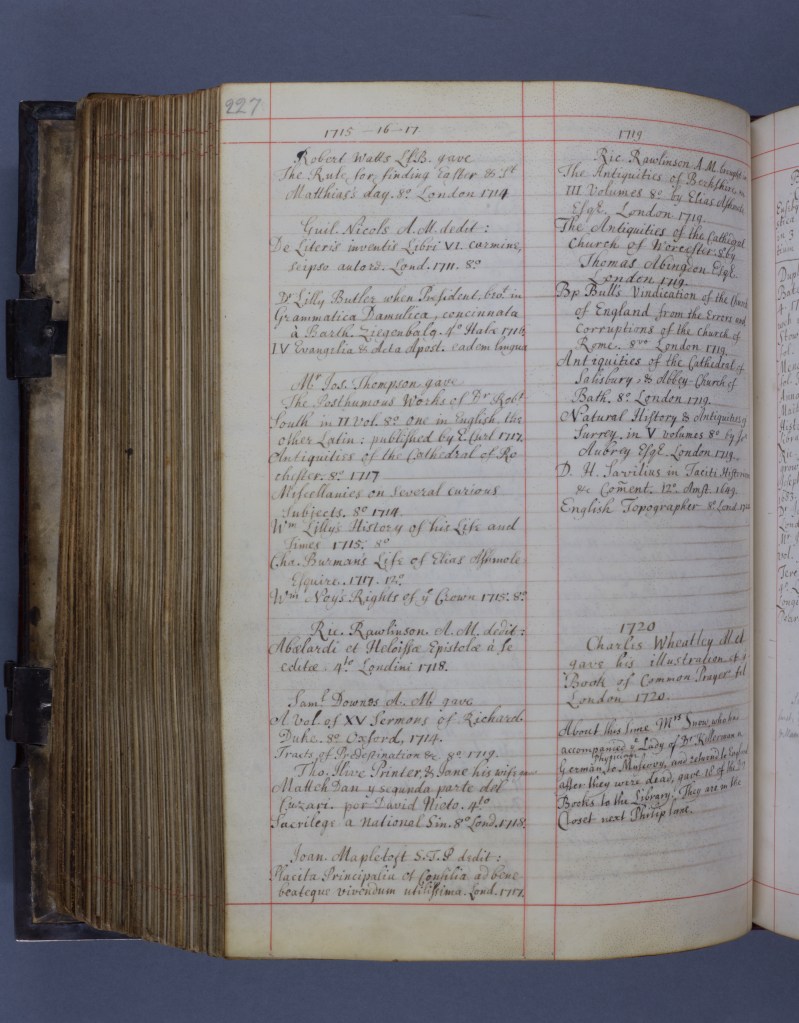 227
1715 - 16 - 17
Robert Watts LL.B. gave
The Rule for finding Easter & St
Matthias's day. 8o London 1714
Guil. Nicols A. M. dedit:
De Literis inventis Libri VI. carmine,
seipso autore. Lond. 1711. 8o
Dr Lilly Butler when President, brot. in
Grammatica Damulica, concinnata
à Barth. Ziegenbalg. 4o Halæ 1716
IV Evangelia & Acta Apost. eadem lingua
Mr Jos. Thompson gave
The Posthumous Works of Dr Robt
South in II Vol. 8o one in English, the
other Latin: published by E. Curl 1717.
Antiquities of the Cathedral of Ro
chester. 8o 1717
Miscellanies on several curious
Subjects. 8o 1714
Wm Lilly's History of his Life and
Times 1715. 8o
Cha. Burman's Life of Elias Ashmole
Esquire. 1717. 12o
Wm Noy's Rights of ye Crown 1715. 8o
Ric. Rawlinson. A. M. dedit:
Abælardi et Heloissæ Epistolæ à se
editæ 4to Londini 1718.
Saml Downes A. M. gave
A Vol. of XV Sermons of Richard
Duke. 8o Oxford, 1714.
Tracts of Prædestination &c 8o 1719.
Tho. Ilive Printer, & Jane his wife
Matteh Dan y segunda parte del
Cuzari. por David Nieto. 4to
Sacrilege a National Sin. 8o Lond. 1718.
Joan. Mapletoft S. T. P. dedit:
Placita Principalia et Consilia ad bene
beateque vivendum utilissima. Lond. 1717.
1719
Ric. Rawlinson A. M. brought in
The Antiquities of Berkshire, in
III Volumes 8o by Elias Ashmole
EsqE. London 1719.
The Antiquities of the Cathedral
Church of Worcester. 8o by
Thomas Abingdon EsqE.
London 1719.
Bp Bull's Vindication of the Church
of England from the Errors and
Corruptions of the Church of
Rome. 8vo London 1719
Antiquities of the Cathedral of
Salisbury, & Abbey-Church of
Bath. 8o London 1719.
Natural History & Antiquities of
Surrey. in V volumes 8o by Jn
Aubrey EsqE. London 1719.
D. H. Savilius in Taciti Histor
&c Com̃ent. 12o Amst. 1649.
English Topographer 8o Lond. 1720
1720
Charles Wheatley
gave his illustration of ye
Book of Common Prayer
London 1720.
About this time Mrs Snow, who had
accompanied ye Lady of Dr Killerman a
German Physician to Muscovy, and returned to
after they were dead, gave 18 of the Drs
Books to the Library. They are in the
Closet next Philip lane.